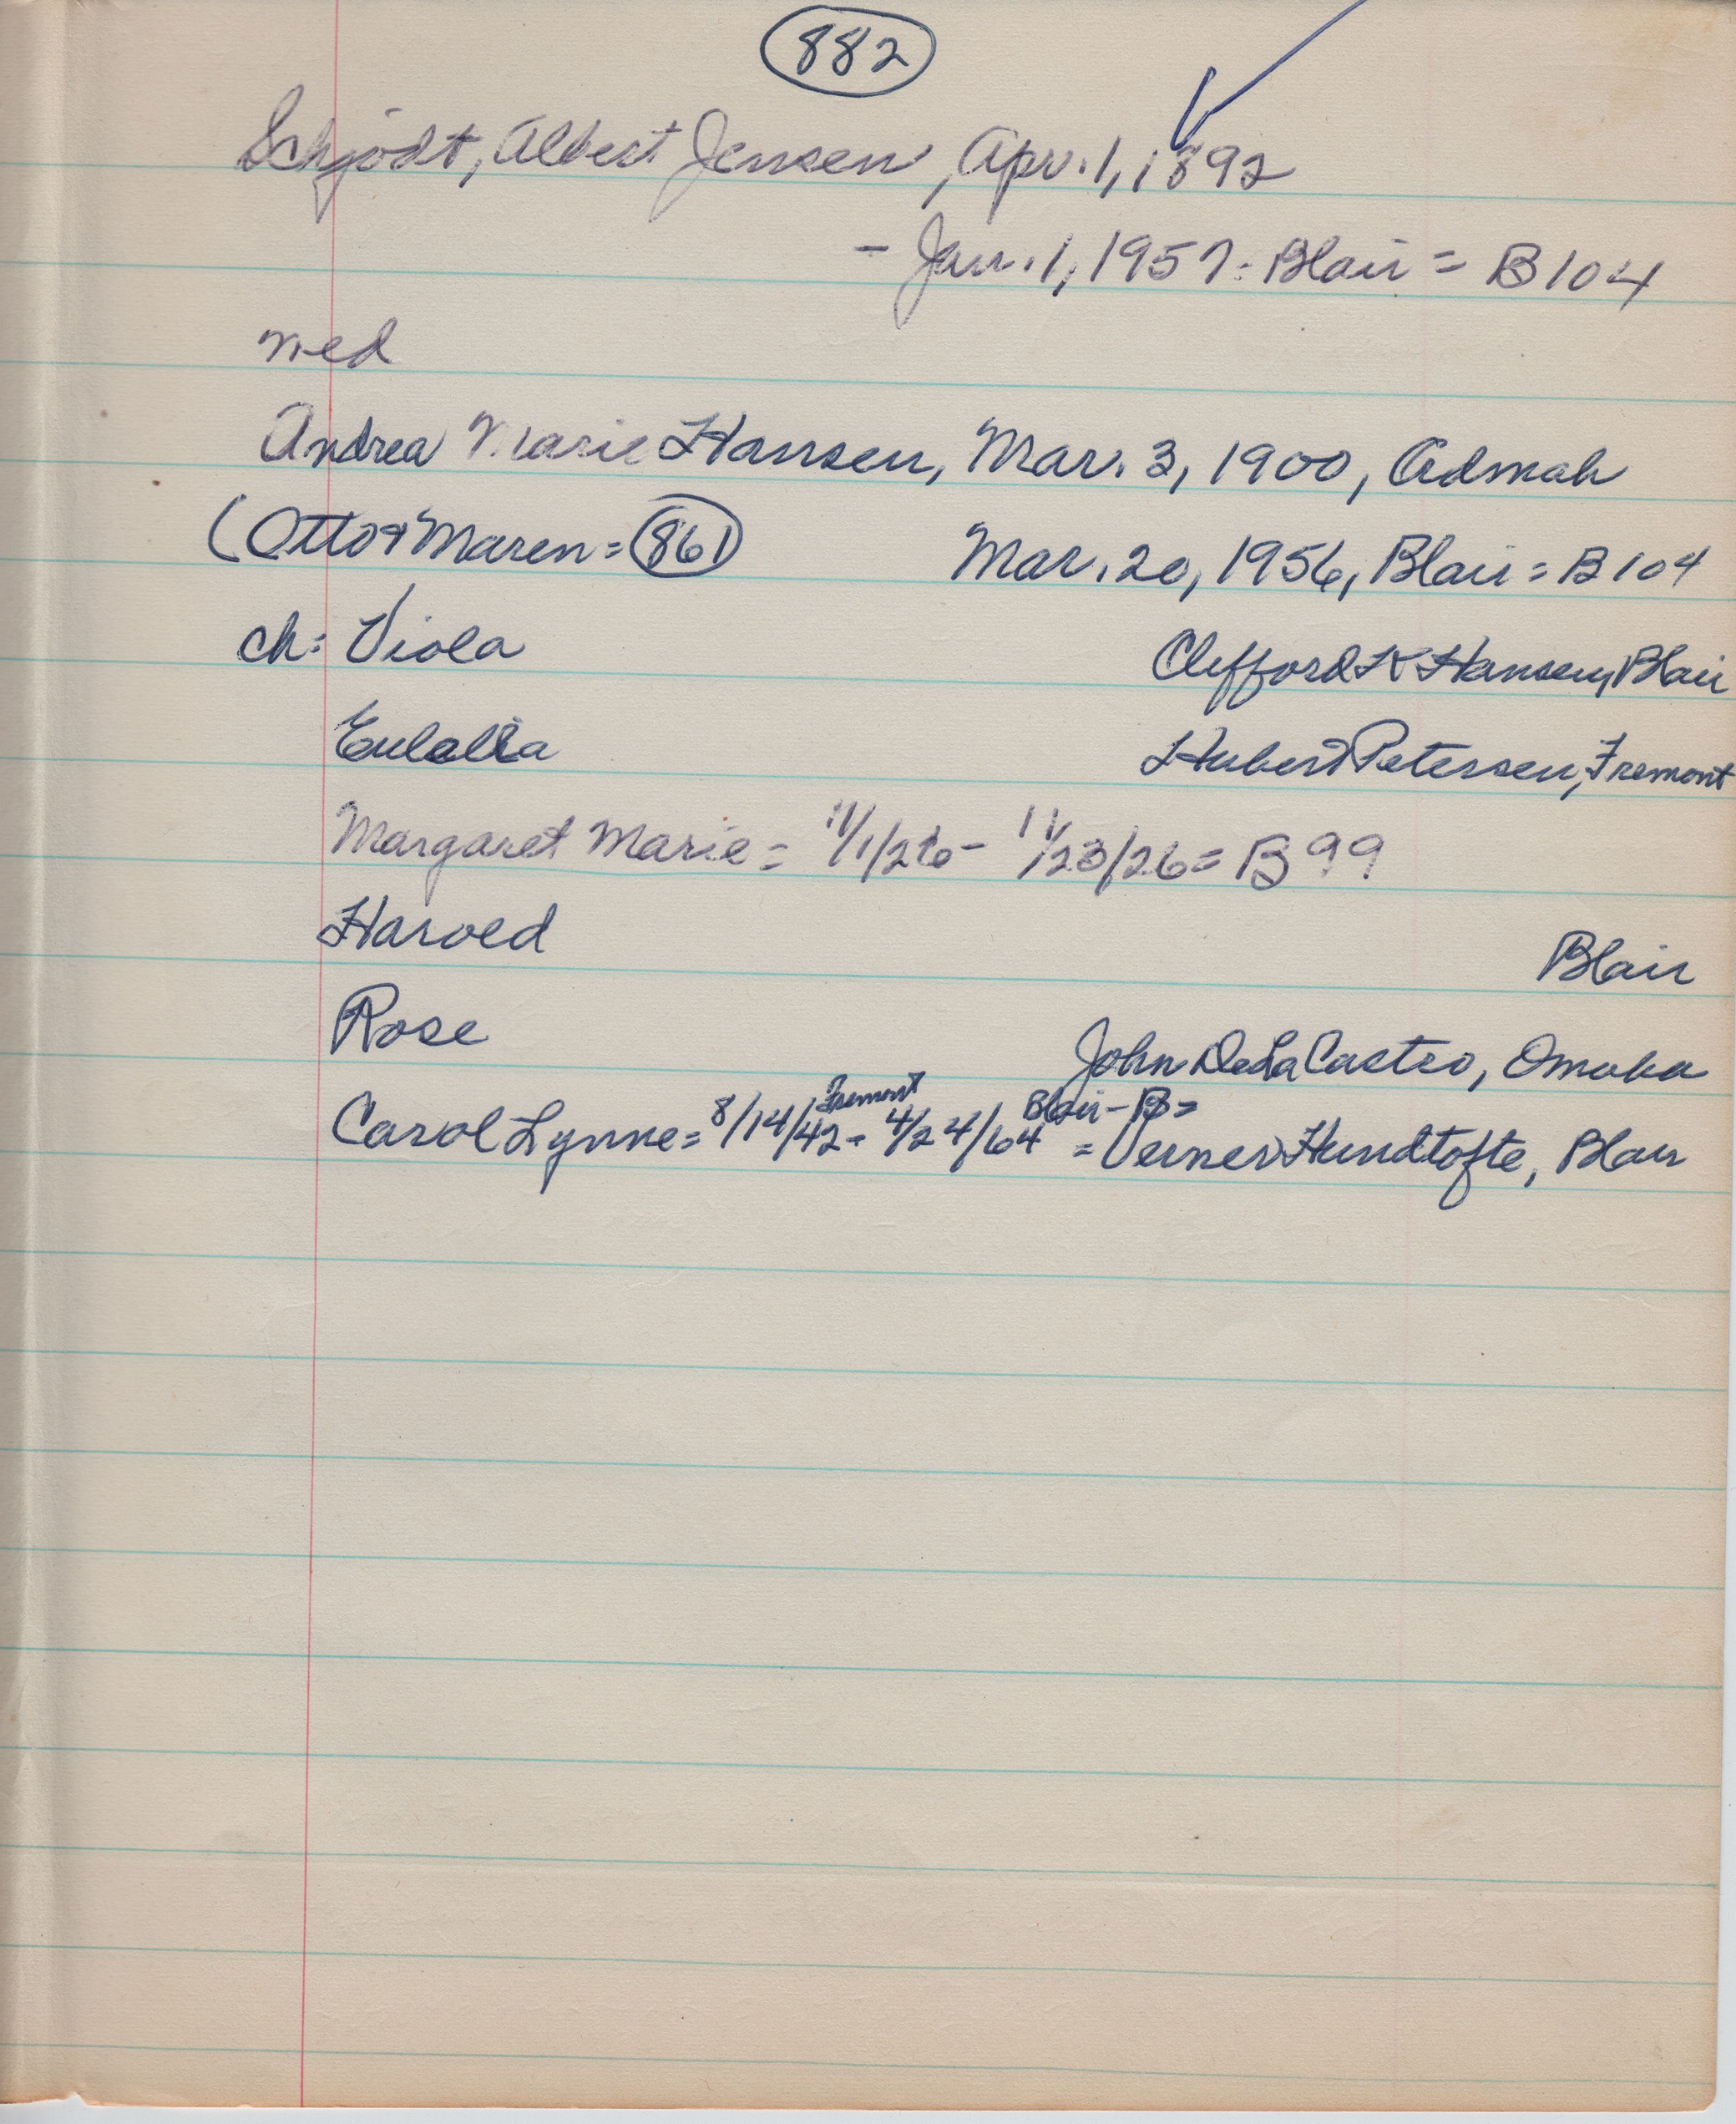 882
Schjodt, Albert Jensen, Apr. 1, 1892
- Jan. 1, 1957 = Blair = B104
med
Andrea Marie Hansen, Mar. 3, 1900, Admah
(Otto & Maren = 861) Mar. 20, 1956, Blair = B104
ch: Viola Clifford K Hansen, Blair
Eulalia Hubert Petersen, Fremont
Margaret Marie = 11/1/26 - 11/23/26 = B99
Harold Blair
Rose John DeLa Castro, Omaha
Fremont Blair - B =
Carol Lynne = 8/14/42 - 4/24/64 = Verner Hundtofte, Blair